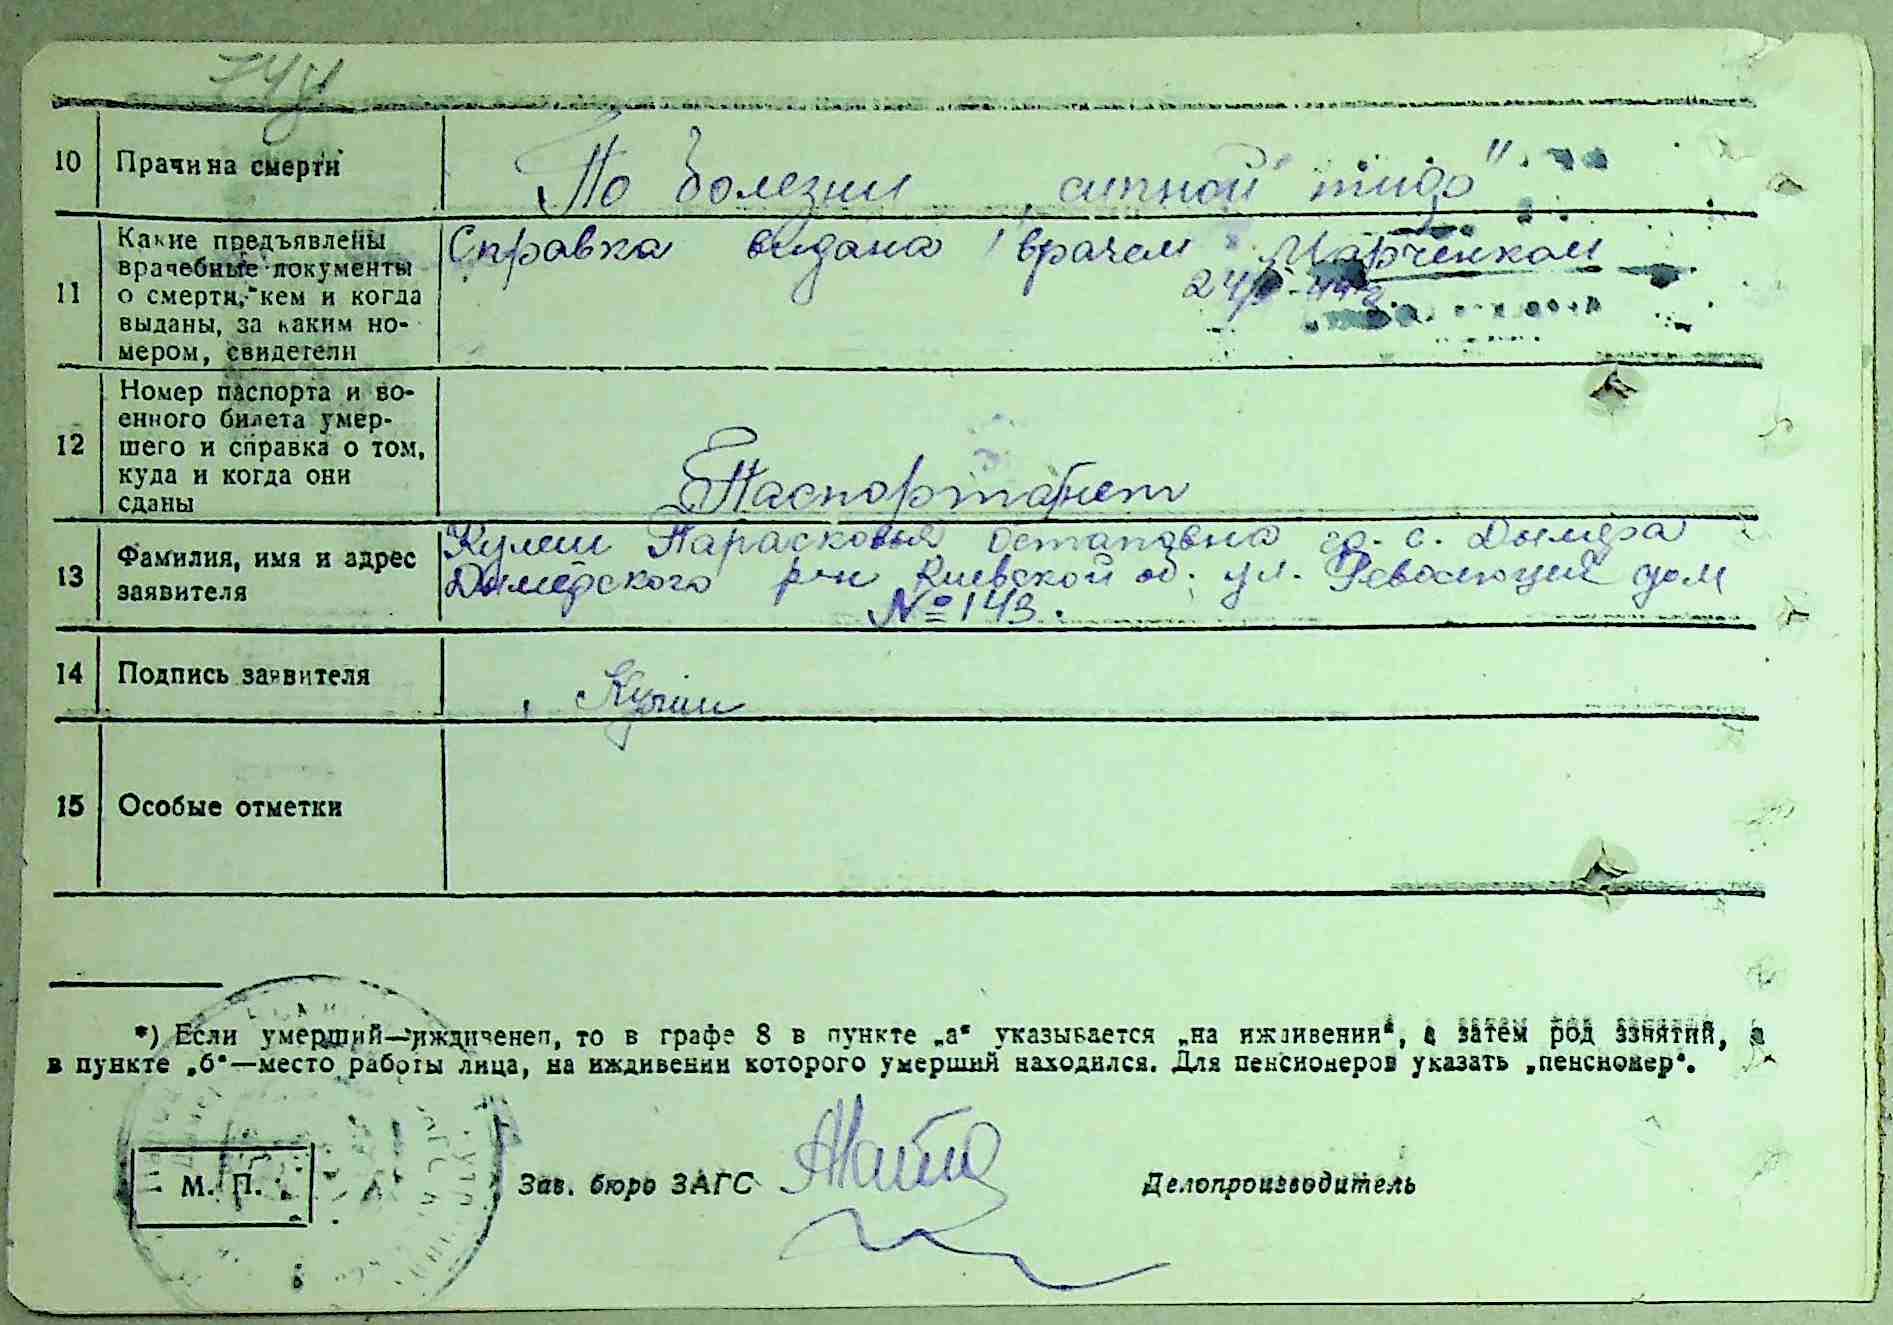 10 Прачина смерти По болезни „сыпной тиф"
11 Какие предъявлены врачебные документы о смерти, кем и когда выданы, за каким но-
мером, свидетели
Справка выдана врачем Марченком
12 Номер паспорта и во-
енного билета умер-
шего и справка о том,
куда и когда они
сданы
Паспорта нет
13 Фамилия, имя и адрес
заявителя
Кулиш Парасковья Остаповна с. Дымера
Дымерского р-н Киевской об. ул. Революций дом
№ 143.
14 Подпись заявителя Куліш
15 Особые отметки
*) Если умерший—иждивенец, то в графе 8 в пункте „а“ указывается „на иждивении“, а затем род занятий, а
в пункте „б“—место работы лица, на иждивении которого умерший находился. Для пенсионеров указать „пенсионер“.
М. П. Зав. бюро ЗАГС Делопроизводитель